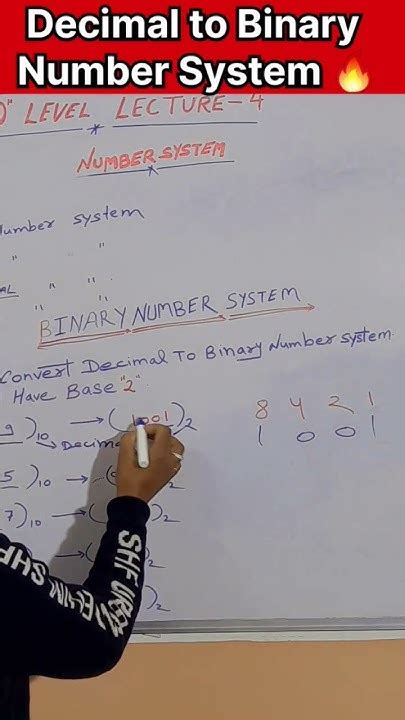 Decimal to Binary
Number System 🔥
"O" LEVEL LECTURE-4
NUMBER SYSTEM
Number system
" "
" "
" "
BINARY NUMBER SYSTEM
Convert Decimal To Binary Number system.
Have Base "2".
9 )10 → (1001)2
8 4 2 1
1 0 0 1
5 )10 → ( )2
7 )10 → ( )2
→ ( )2
)2